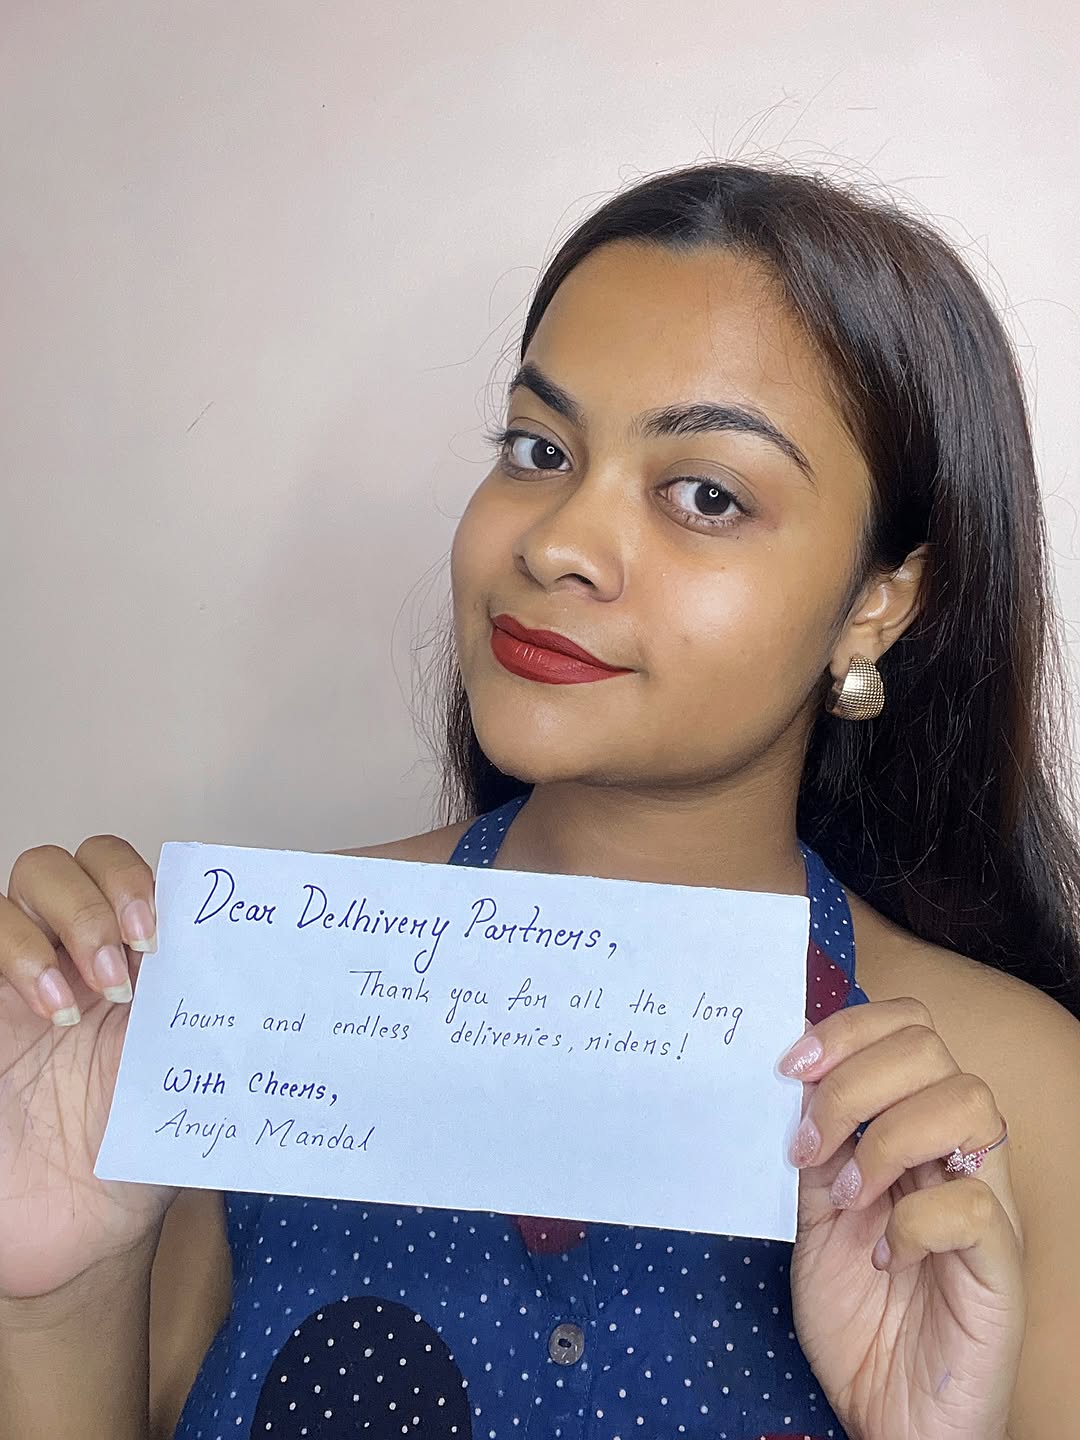 Dear Delhivery Partners,
Thank you for all the long
hours and endless deliveries, riders!
With Cheers,
Anuja Mandal